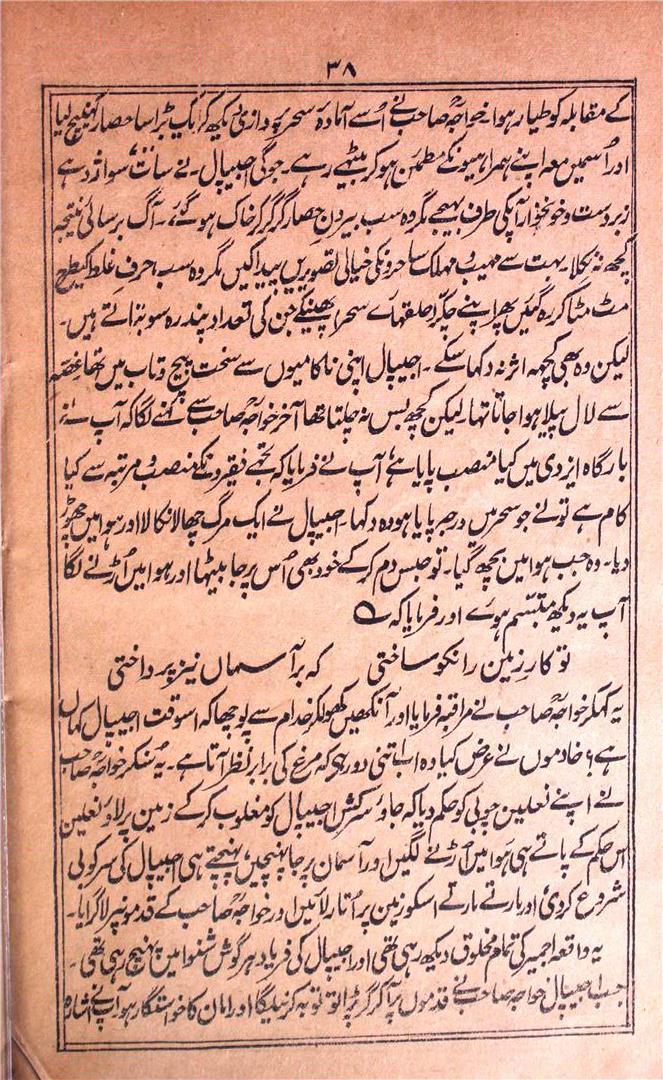 ۳۸
کے مقابلہ کو طیار ہوا۔ خواجہؒ صاحب نے اُسے آمادہ سحر پردازی دیکھ کر ایک بڑا سا حصار کھینچ لیا
اور اُسمیں معہ اپنے ہمراہیونکے مطمئن ہو کر بیٹھے رہے۔ جوگی اجیپال۔ نے سات سو اژدہے
زبردست و خونخوار آپکی طرف بھیجے مگر وہ سب بیرون حصار گر گر کر خاک ہو گئے۔ آگ برسائی نتیجہ
کچھ نہ نکلا۔ بہت سے مہیب و مہلک ساحرونکی خیالی تصویریں پیدا کیں مگر وہ سب احرف غلط کیطرح
مٹ مٹا کر رہ گئیں پھر اپنے چکر احلقہاے سحر پھینکے جن کی تعداد پندرہ سو بتاتے ہیں۔
لیکن وہ بھی کچھہ اثر نہ دکھا سکے۔ اجیپال اپنی ناکامیوں سے سخت پیچ و تاب میں تھا غصہ
سے لال پیلا ہوا جاتا تھا۔ لیکن کچھ بس نہ چلتا تھا آخر خواجہؒ صاحب سے کہنے لگا کہ آپ نے
بارگاہ ایزدی میں کیا منصب پایا ہے، آپ نے فرمایا کہ تجھے فقیرونکے منصب و مرتبہ سے کیا
کام ہے تو نے جو سحر میں درجہ پایا ہو وہ دکھا۔ اجیپال نے ایک مرگ چھالا نکالا اور ہوا میں چھوڑ
دیا۔ وہ جب ہوا میں بچھ گیا۔ تو حبس دم کر کے خود بھی اُس پر جا بیٹھا اور ہوا میں اُڑنے لگا
آپ یہ دیکھ متبسّم ہوے اور فرمایا کہ
تو کار زمین را نکو ساختی کہ بر آسماں نیز پرداختی
یہ کہکر خواجہؒ صاحب نے مراقبہ فرمایا اور آنکھیں کھولکر خدام سے پوچھا کہ اسوقت اجیپال کہاں
ہے؟ خادموں نے عرض کیا وہ اب اتنی دور ہی کہ مرغ کی برابر نظر آتا ہے۔ یہ سُنکر خواجہؒ صاحب
نے اپنے نعلین چوبی کو حکم دیا کہ جاو سرکش اجیپال کو مغلوب کر کے زمین پر لاو نعلین
اس حکم کے پاتے ہی ہوا میں اُڑنے لگیں اور آسمان پر جا پہنچیں، پہنچتے ہی اجیپال کی سرکوبی
شروع کر دی اور مارتے مارتے اسکو زمین پر اُتار لائیں اور خواجہؒ صاحب کے قدمونپر لا گرایا۔
یہ واقعہ اجمیر کی تمام مخلوق دیکھ رہی تھی اور اجیپال کی فریاد ہر گوش شنوا میں پہنچ رہی تھی۔
جب اجیپال خواجہؒ صاحب کے قدموں پر آ کر گر پڑا تو توبہ کرنے لگا اور امان کا خواستگار ہوا آپنے اشارہ